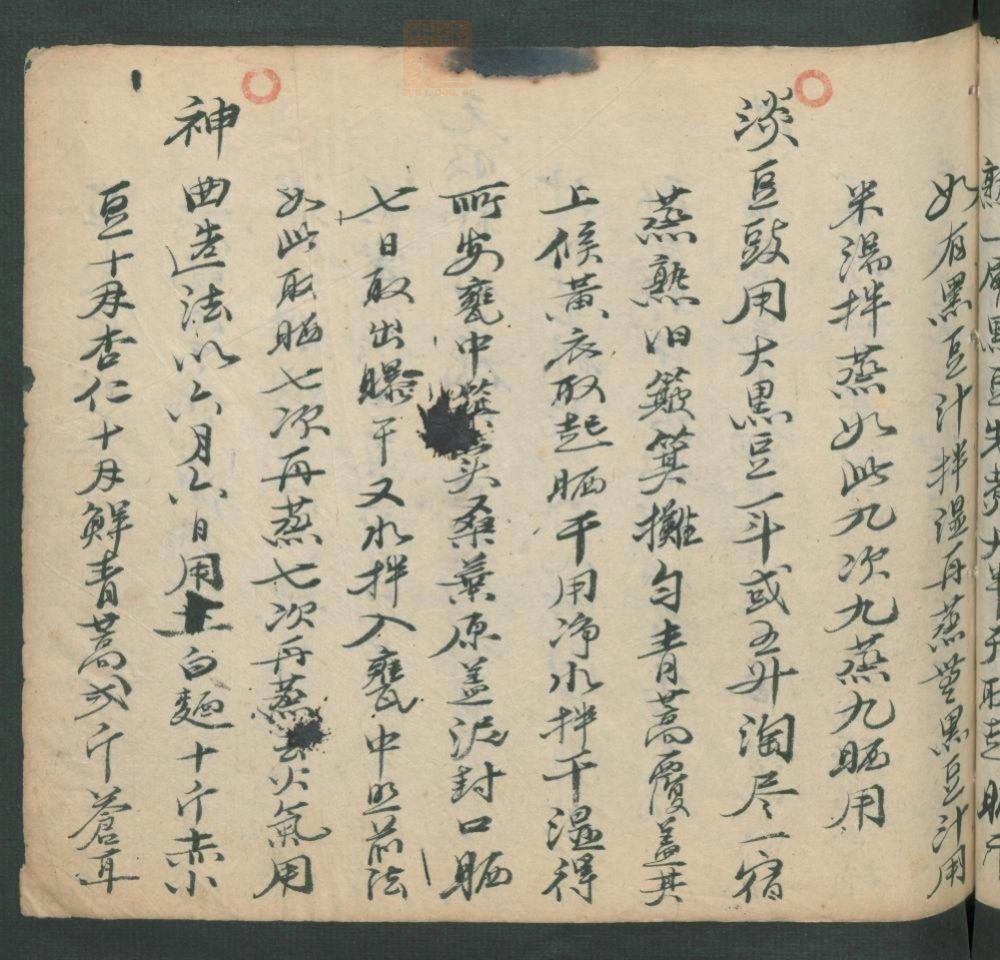 熟一層黑豆
如有黑豆汁拌湿再蒸無黑豆汁用
米湯拌蒸如此九次九蒸九晒用
淡豆豉用大黑豆一斗或五升淘尽一宿
蒸熟旧簸箕攤匀青蒿覆盖其
上候黄衣取起晒干用净水拌干湿得
所安甕中桑葉原盖泥封口晒
七日取出曝干又水拌入甕中照前法
如此取晒七次再蒸七次再蒸去火氣用
神曲造法以六月六日用白麵十斤赤小
豆十及杏仁十及鮮青蒿弍斤蒼耳